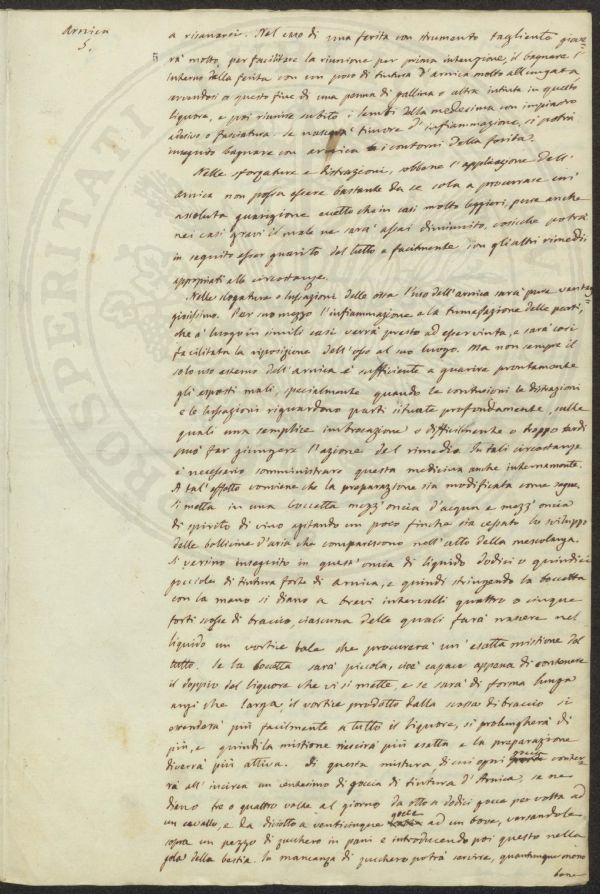 Arnica
5.
a risanarsi. Nel caso di una ferita con strumento tagliente giove-
rà molto, per facilitare la riunione per prima intenzione, il bagnare l'
interno della ferita con un poco di tintura d'arnica molto allungata
servendosi a questo fine di una penna di gallina o altra intinta in questo
liquore, e poi riunire subito i lembi della medesima con impiastro
adesivo o fasciatura. Se nascerà timore d'infiammazione, si potrà
in seguito bagnare con arnica i contorni della ferita.
Nelle sforzature e distrazioni, sebbene l'applicazione dell'
arnica non possa essere bastante da se sola a procurare un'
assoluta guarigione eccetto che in casi molto leggieri, pure anche
nei casi gravi il male ne sarà assai diminuito, cosicché potrà
in seguito esser guarito del tutto e facilmente con gli altri rimedi
appropriati alle circostanze.
Nelle slogature o lussazioni delle ossa l'uso dell'arnica sarà pure vantag-
giosissimo. Per suo mezzo l'infiammazione e la tumefazione delle parti,
che à luogo in simili casi verrà presto ad esser vinta, e sarà così
facilitata la riposizione dell'osso al suo luogo. Ma non sempre il
solo uso esterno dell'arnica è sufficiente a guarire prontamente
gli esposti mali, specialmente quando le contusioni le distrazioni
e le lussazioni riguardono parti situate profondamente, sulle
quali una semplice imbrocazione o difficilmente o troppo tardi
può far giungere l'azione del rimedio. In tali circostanze
è necessario somministrare questa medicina anche internamente.
A tal'effetto conviene che la preparazione sia modificata come segue.
Si metta in una boccetta mezz'oncia d'acqua e mezz'oncia
di spirito di vino agitando un poco finchè sia cessato lo sviluppo
delle bollicine d'aria che compariscono nell'atto della mescolanza.
Si versino inseguito in quest'oncia di liquido dodici o quindici
gocciole di tintura forte di arnica, e quindi stringendo la boccetta
con la mano si diano a brevi intervalli quattro o cinque
forti scosse di braccio, ciascuna delle quali farà nascere nel
liquido un vortice tale che procurerà un'esatta mistione del
tutto. Se la boccetta sarà piccola, cioè capace appena di contenere
il doppio del liquore che vi si mette, e se sarà di forma lunga
anzi che larga, il vortice prodotto dalla scossa di braccio si
estenderà più facilmente a tutto il liquore, si prolungherà di
più, e quindi la mistione riescirà più esatta e la preparazione
diverrà più attiva. Di questa mistura di cui ogni goccia conter-
rà all'incirca un centesimo di goccia di tintura d'Arnica, se ne
diano tre o quattro volte al giorno da otto a dodici gocce per volta ad
un cavallo, e da diciotto a venticinque gocce ad un bove, versandole
sopra un pezzo di zucchero in pani e introducendo poi questo nella
gola della bestia. In mancanza di zucchero potrà servire, quantunque meno
bene